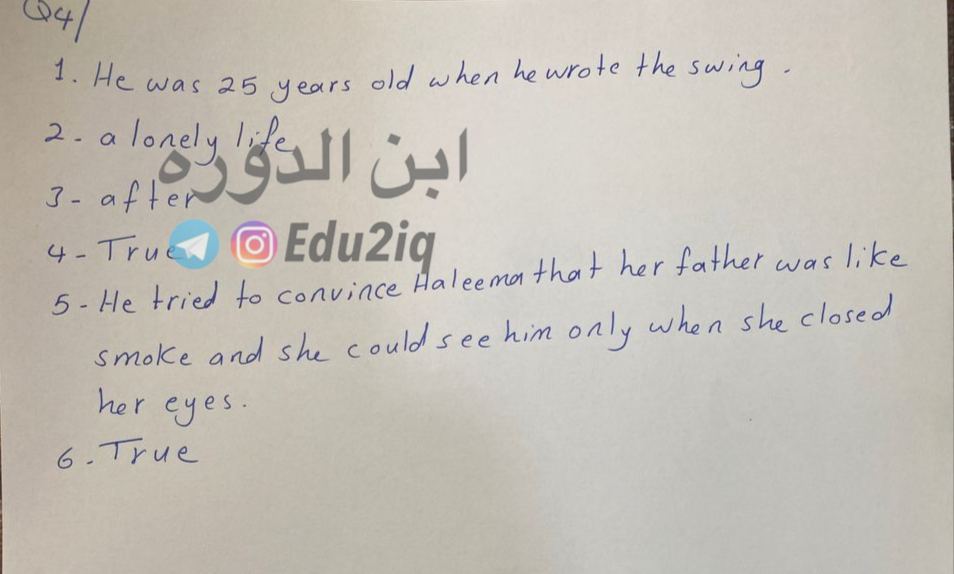 Q4/
1. He was 25 years old when he wrote the swing.
2- a lonely life
ابن الدوره
3- after
4- True
Edu2iq
5- He tried to convince Haleema that her father was like
smoke and she could see him only when she closed
her eyes.
6. True